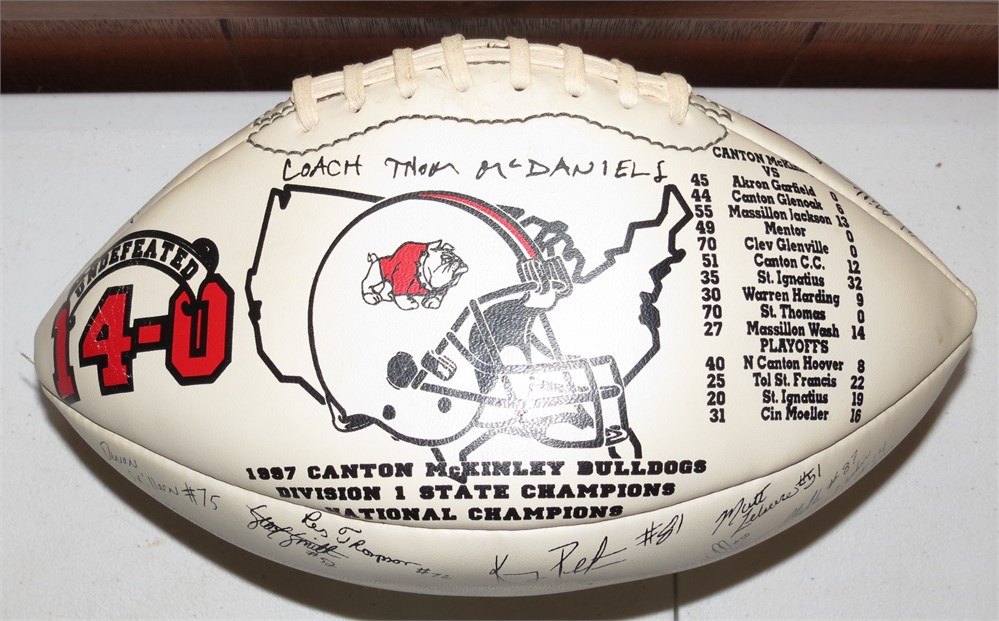 COACH THOM McDANIELS
UNDEFEATED
14-0
CANTON McKIN
VS
45 Akron Garfield 0
44 Canton Glenoak 6
55 Massillon Jackson 13
49 Mentor 0
70 Clev Glenville 0
51 Canton C.C. 12
35 St. Ignatius 32
30 Warren Harding 9
70 St. Thomas 0
27 Massillon Wash 14
PLAYOFFS
40 N Canton Hoover 8
25 Tol St. Francis 22
20 St. Ignatius 19
31 Cin Moeller 16
1997 CANTON McKINLEY BULLDOGS
DIVISION 1 STATE CHAMPIONS
NATIONAL CHAMPIONS
#75
#81
Matt #51